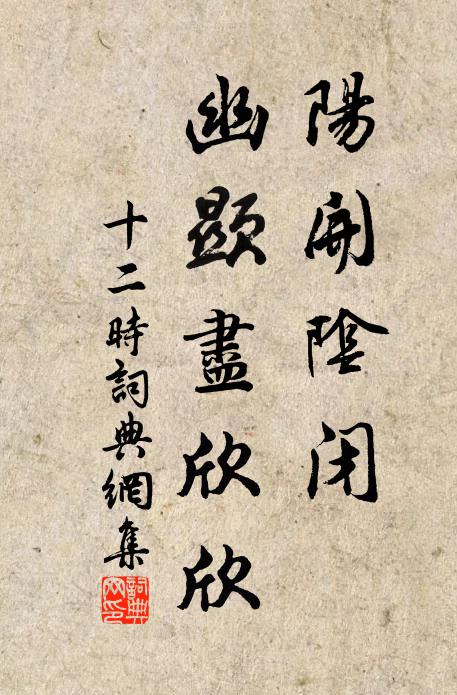 陽開陰闭
幽顯盡欣欣
十二時詞典網集
詞典網印